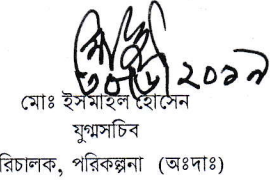 ২০১৯
মোঃ ইসমাইল হোসেন
যুগ্মসচিব
রিচালক, পরিকল্পনা (অঃদাঃ)